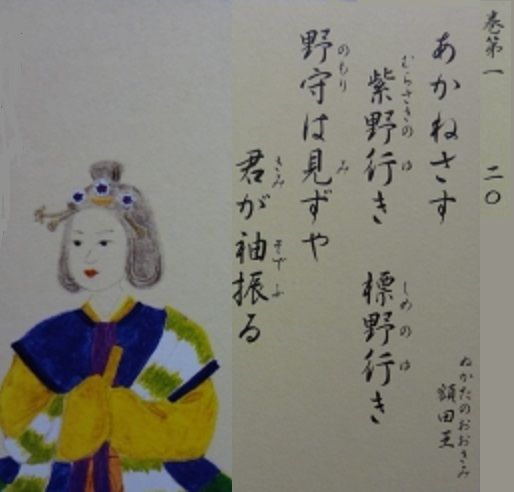 巻第一 二〇
あかねさす
むらさきの ゆ しめの ゆ
紫野行き 標野行き
のもり み
野守は見ずや
きみ そでふ
君が袖振る
ぬかたのおおきみ
額田王